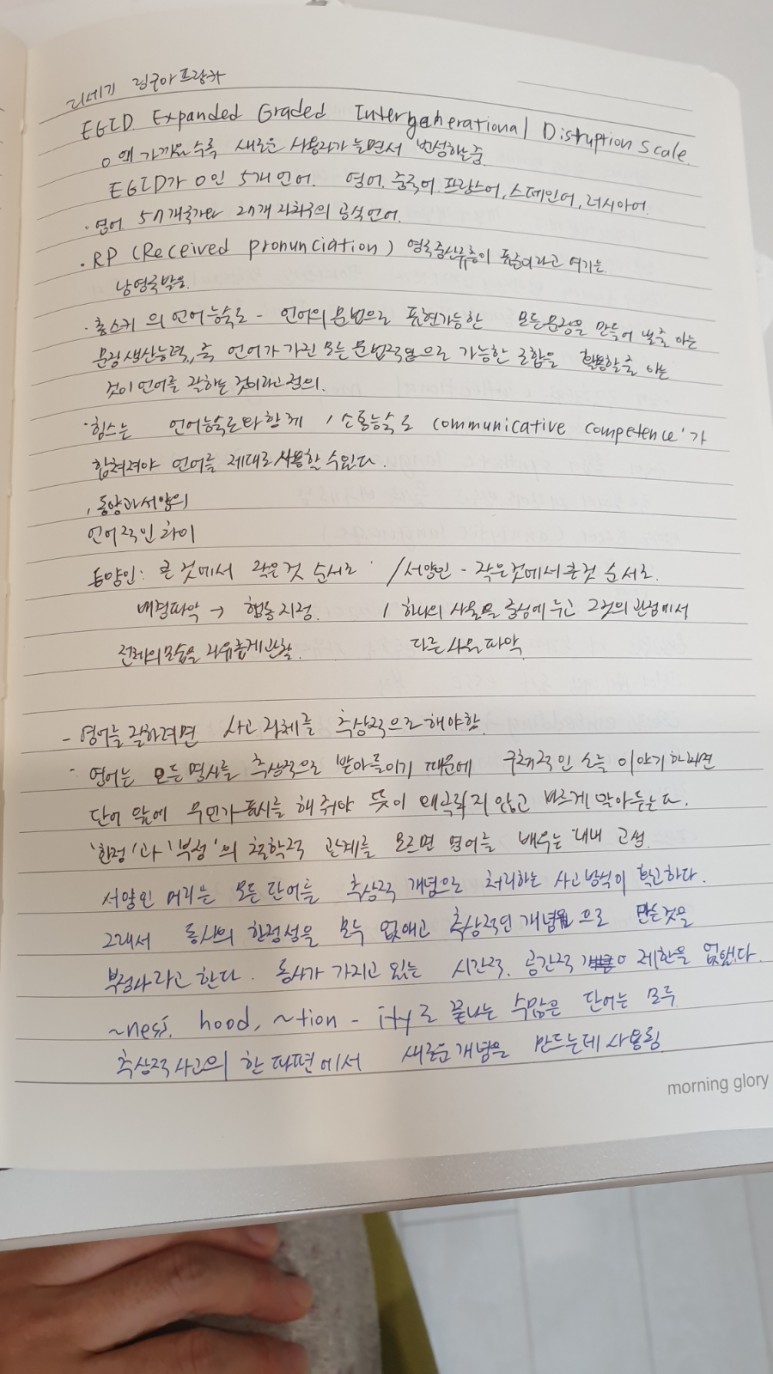 21세기 링구아프랑카
EGID Expanded Graded Intergenerational Disruption Scale.
0에 가까울수록 새로운 사용자가 늘면서 번성하는중
EGID가 0인 5개언어. 영어. 중국어. 프랑스어, 스페인어, 러시아어.
· 영어 57개국가와 27개 자치주의 공식언어.
· RP (Received pronunciation) 영국중산류층이 표준이라고 여기는
남영국발음.
· 촘스키의 언어능숙도 - 언어의 문법으로 표현가능한 모든문장을 만들어 낼줄 아는
문장생산능력, 즉 언어가 가진 모든 문법적으로 가능한 조합을 활용할줄 아는
것이 언어를 잘하는 것이라고 정의.
· 힘스는 언어능숙도와함께 '소통능숙도 communicative competence'가
합쳐져야 언어를 제대로 사용할 수있다.
, 동양과서양의
언어적인 차이
동양인: 큰 것에서 작은것 순서로 / 서양인 - 작은것에서 큰것 순서로.
배경파악 → 행동지정. / 하나의 사물을 중심에 두고 그것의 관점에서
전체의모습을 자유롭게관찰. 다른사물파악.
- 영어를 잘하려면 사고 자체를 추상적으로 해야함.
· 영어는 모든명사를 추상적으로 받아들이기 때문에 구체적인 소를 이야기하려면
단어 앞에 무언가표시를 해 줘야 뜻이 왜곡되지 않고 바르게 알아듣는다.
'한정'과 '부정'의 철학적 관계를 모르면 영어를 배우는 내내 고생.
서양인 머리는 모든 단어를 추상적 개념으로 처리하는 사고방식이 확고하다.
그래서 동사의 한정성을 모두 없애고 추상적인 개념으로 만든것을
부정사라고 한다. 동사가 가지고 있는 시간적. 공간적 제한을 없앴다.
~ness. hood, ~tion - ity로 끝나는 수많은 단어는 모두
추상적사고의 한 파편에서 새로운개념을 만드는데 사용됨
morning glory